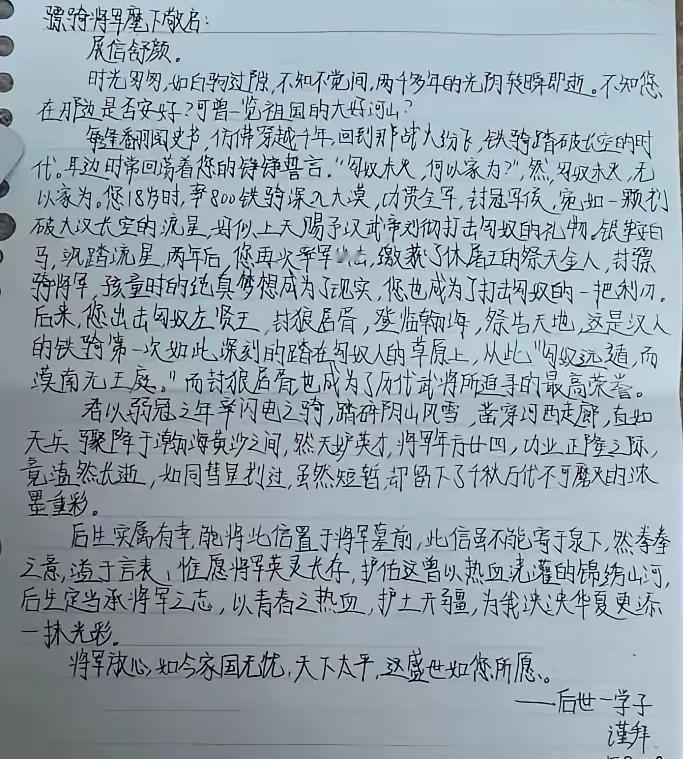 骠骑将军麾下敬启：
展信舒颜。
时光匆匆，如白驹过隙，不知不觉间，两千多年的光阴转瞬即逝。不知您
在那边是否安好？可曾一览祖国的大好河山？
每每翻阅史书，仿佛穿越千年，回到那战火纷飞，铁骑踏破长空的时
代。耳边时常回荡着您的铮铮誓言。“匈奴未灭，何以家为？”然，匈奴未灭，无
以家为。您18岁时，率800铁骑深入大漠，功贯全军，封冠军侯，宛如一颗划
破大汉长空的流星，好似上天赐予汉武帝刘彻打击匈奴的礼物。银鞍白
马，飒踏流星，两年后，您再次率军出击，缴获了休屠王的祭天金人，封骠
骑将军，孩童时的纯真梦想成为了现实，您也成为了打击匈奴的一把利刃。
后来，您出击匈奴左贤王，封狼居胥，登临翰海，祭告天地，这是汉人
的铁骑第一次如此深刻的踏在匈奴人的草原上，从此“匈奴远遁，而
漠南无王庭。”而封狼居胥也成为了历代武将所追寻的最高荣誉。
君以弱冠之年率闪电之骑，踏碎阴山风雪，凿穿河西走廊，直如
天兵骤降于瀚海黄沙之间，然天妒英才，将军年方廿四，功业正隆之际，
竟溘然长逝，如同彗星划过，虽然短暂，却留下了千秋万代不可磨灭的浓
墨重彩。
后生实属有幸，能将此信置于将军墓前，此信虽不能寄于泉下，然拳拳
之意，溢于言表，惟愿将军英灵长存，护佑这曾以热血浇灌的锦绣山河，
后生定当承将军之志，以青春之热血，护土开疆，为我泱泱华夏更添
一抹光彩。
将军放心，如今家国无忧，天下太平，这盛世如您所愿。
——后世一学子
谨拜